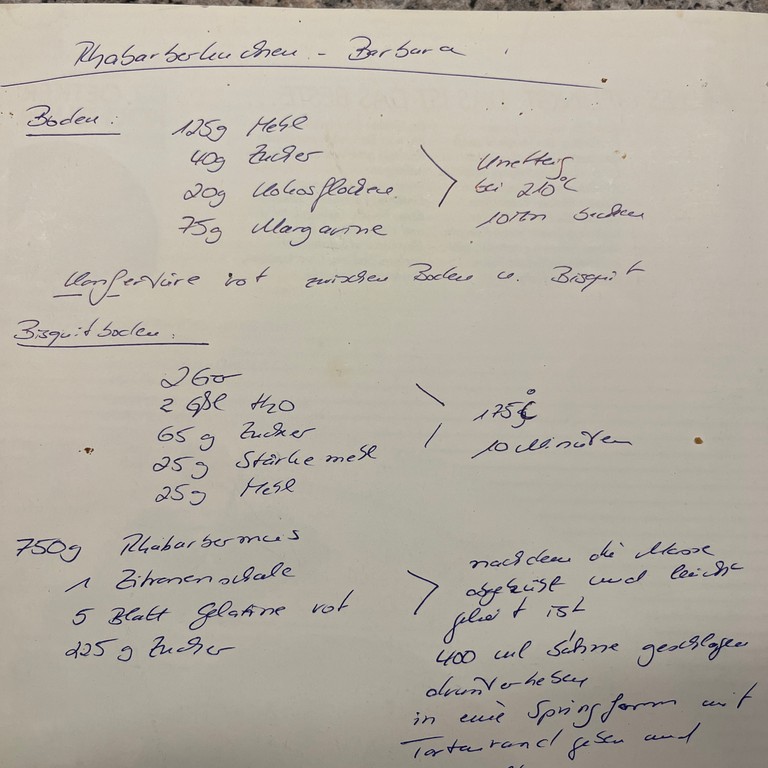 Rhabarberkuchen - Barbara
Boden:
125g Mehl
40g Zucker
20g Kokosflocken
75g Margarine
Knetteig
bei 210°C
10 Min backen
Konfertüre rot zwischen Boden u. Bisquit
Bisquitboden:
2 Eier
2 Eßl H2O
65 g Zucker
25g Stärkemehl
25g Mehl
175°C
10 Minuten
750g Rhabarbermus
1 Zitronenschale
5 Blatt Gelatine rot
225 g Zucker
nachdem die Masse
abgekühlt und leicht
geliert ist
400 ml Sahne geschlagen
drunterheben
in eine Springform mit
Tortenrand geben und